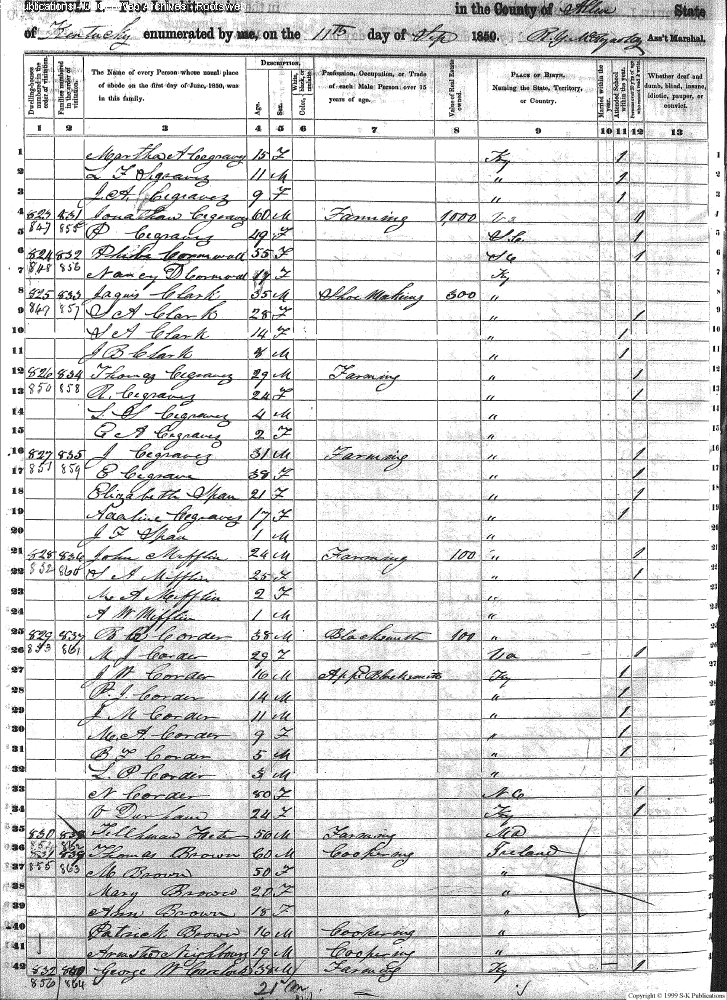 in the County of Allen State
of Kentucky enumerated by me, on the 11th day of Sep 1850. Ass't Marshal.
Dwelling-houses numbered in the order of visitation.
Families numbered in the order of visitation.
The Name of every Person whose usual place of abode on the first day of June, 1850, was in this family.
DESCRIPTION.
Age.
Sex.
Color, White, black, or mulatto.
Profession, Occupation, or Trade of each Male Person over 15 years of age.
Value of Real Estate owned.
PLACE OF BIRTH, Naming the State, Territory, or Country.
Married within the year.
Attended School within the year.
Whether deaf and dumb, blind, insane, idiotic, pauper, or convict.
1 2 3 4 5 6 7 8 9 10 11 12 13
1 Martha A Cegraves 15 F Ky 1
2 L F Segraves 11 M " 1
3 J. A. Cegraves 9 F " 1
4 823 831 Jonathan Cegraves 60 M Farming 1,000 Va 1
5 847 855 P Cegraves 49 F S.C. 1
6 824 832 Phibe Cornwell 55 F S C 1
7 848 856 Nancy D Cornwell F Ky
8 825 833 Clark 35 M Shoe Making 300 "
9 849 857 S A Clark 28 F " 1
10 S A Clark 14 F " 1
11 J B Clark 8 M " 1
12 826 834 Thomas Cegraves 29 M Farming " 1
13 850 858 R. Cegraves 24 F " 1
14 L S Cegraves 4 M "
15 E A Cegraves 2 F "
16 827 835 J Cegraves 31 M Farming " 1
17 851 859 E Cegrave 38 F " 1
18 Elizabeth Span 21 F " 1
19 Cegraves 17 F " 1
20 J F Span 1 M "
21 828 836 John Mifflin 24 M Farming 100 " 1
22 852 860 S A Mifflin 25 F " 1
23 M A Mifflin 2 F "
24 A W Mifflin 1 M "
25 829 837 B B Corder 38 M Blacksmith 100 "
26 853 861 M J Corder 29 F Va 1
27 J W Corder 16 M App. Blacksmith Ky 1
28 P. J. Corder 14 M " 1
29 J M Corder 11 M " 1
30 M. A. Corder 9 F " 1
31 B F Corder 5 M " 1
32 L P Corder 3 M "
33 N Corder 80 F N C 1
34 V Durham 24 F Ky 1
35 830 838 Tillman 56 M Farming Md
36 854 862
831 839 Thomas Brown 60 M Coopering Ireland
37 855 863 M Brown 50 F "
38 Mary Brown 20 F "
39 Ann Brown 18 F "
40 Patrick Brown 16 M Coopering "
41 Neighbours 19 M Coopering "
42 832 840 George W 38 M Farming Ky
856 864
Copyright © 1999 S-K Publications